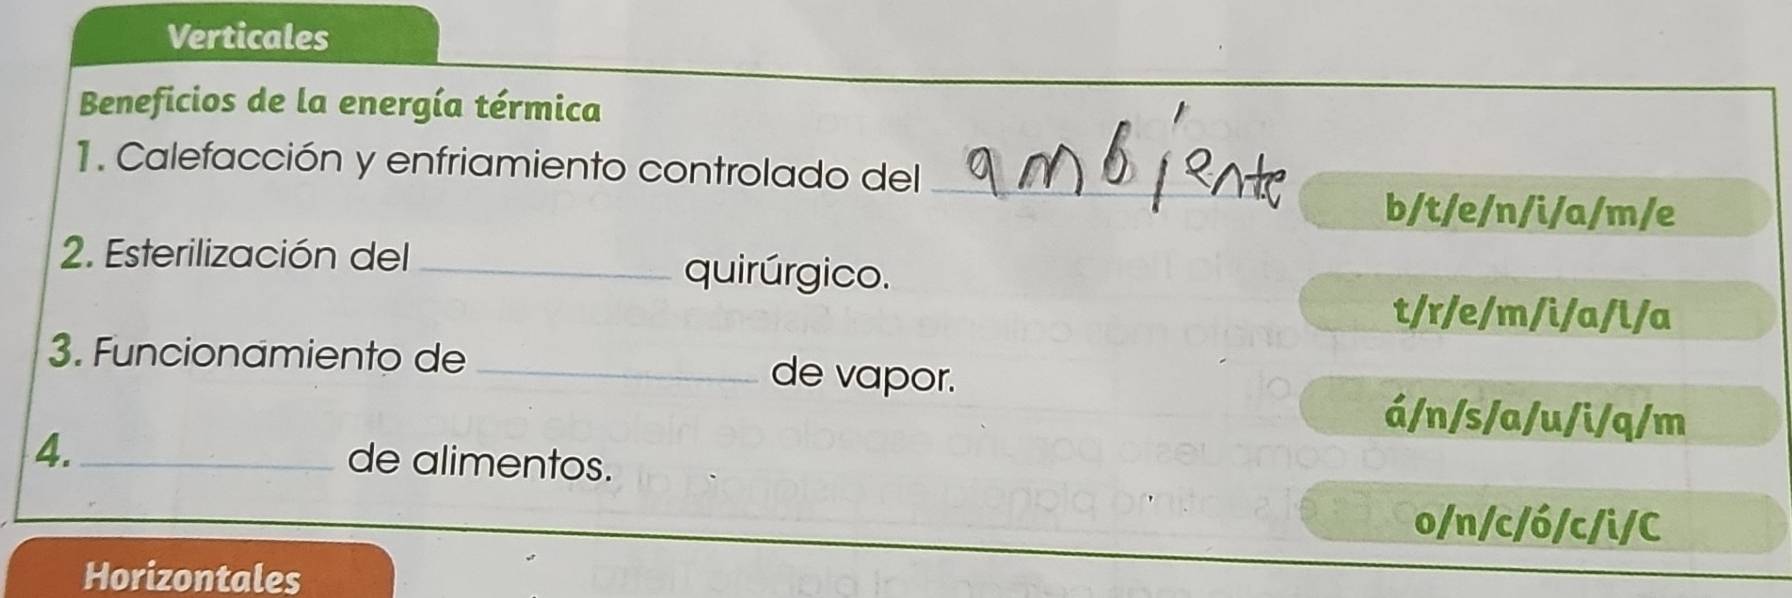 Verticales
Beneficios de la energía térmica
1. Calefacción y enfriamiento controlado del ambiente
b/t/e/n/i/a/m/e
2. Esterilización del ____________ quirúrgico.
t/r/e/m/i/a/l/a
3. Funcionamiento de ____________ de vapor.
á/n/s/a/u/i/q/m
4. ____________ de alimentos.
o/n/c/ó/c/i/C
Horizontales